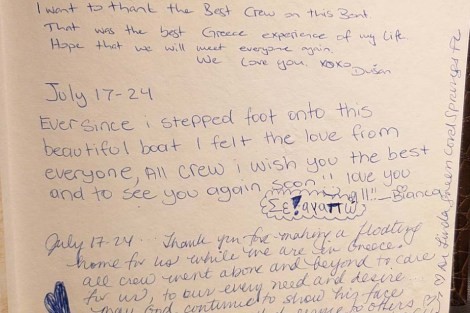 I want to thank the Best Crew on this Boat
That was the best Greece experience of my life.
Hope that we will meet everyone again.
We Love you. XOXO Dušan
July 17-24
Ever since i stepped foot onto this
beautiful boat I felt the love from
everyone, All crew i wish you the best
and to see you again soon!! love you
!!! - Bianca
Σε! αγαπώ
July 17-24 Thank you for making a floating
home for us while we are in Greece.
all crew went above and beyond to care
for us, to our every need and desire...
may God continue to show his face
to others
Linda Coral Springs FL